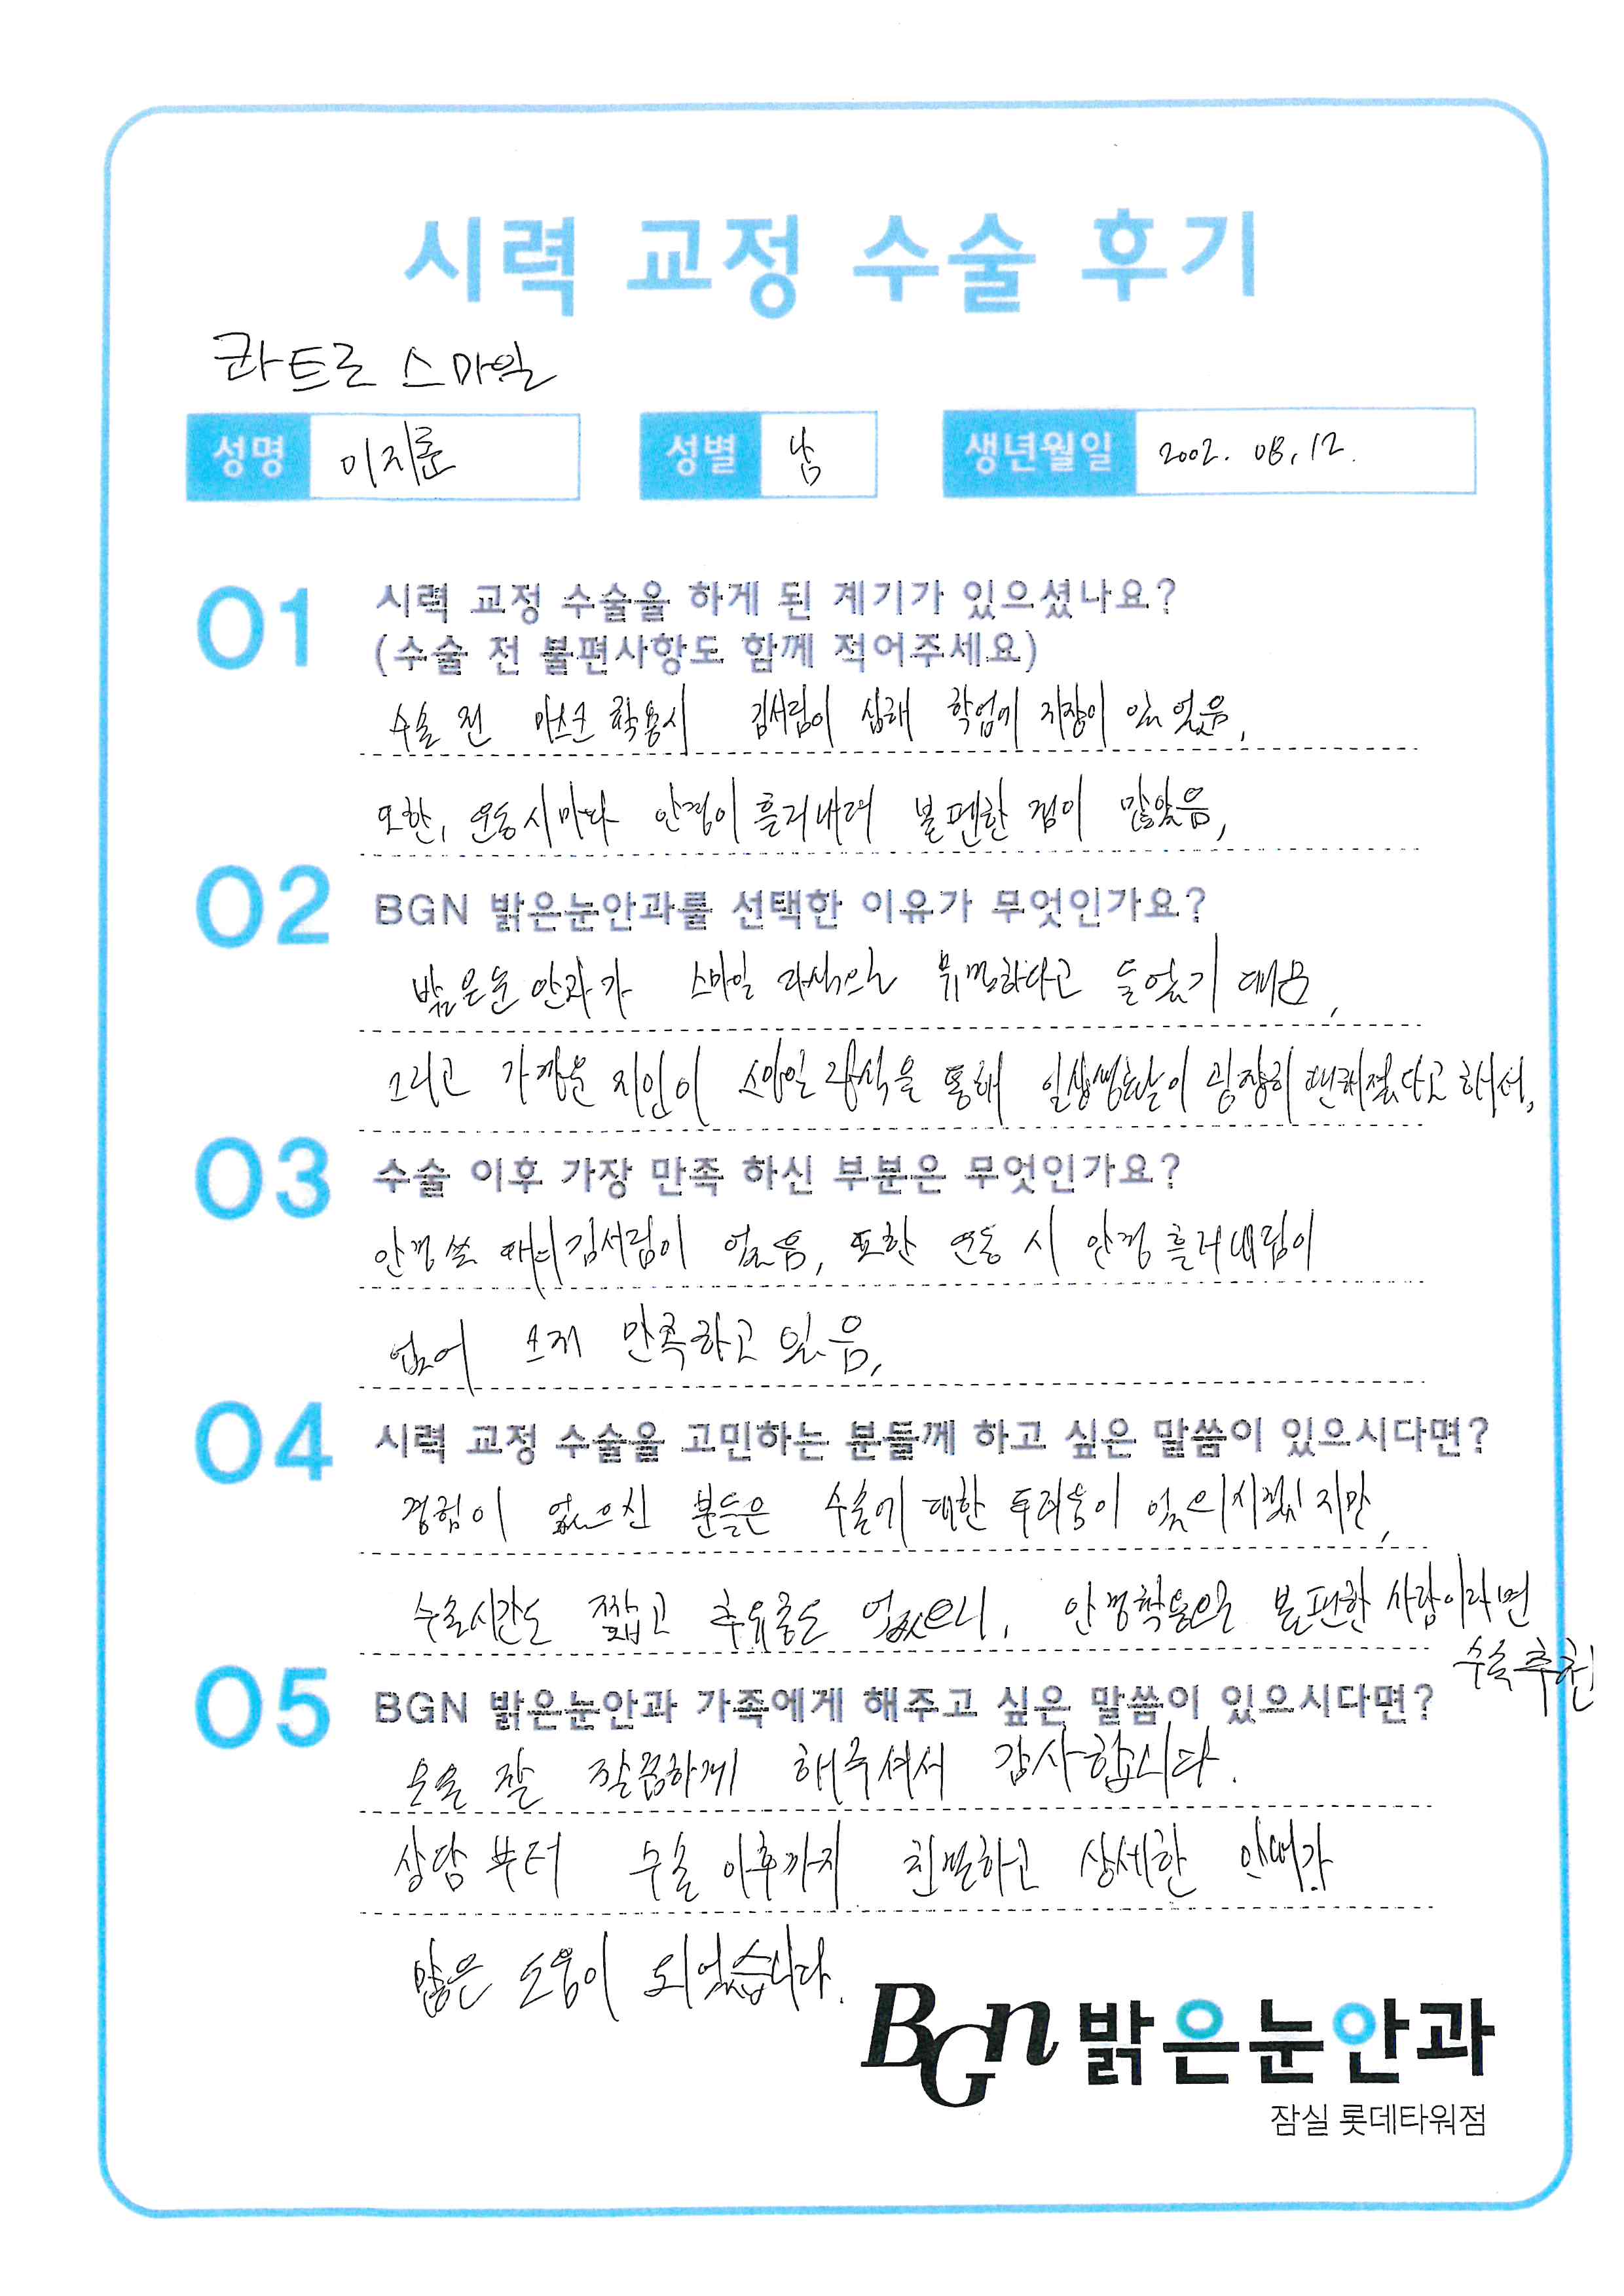 시력 교정 수술 후기
콰트로 스마일
성명 이지훈 성별 남 생년월일 2002. 08. 12.
01 시력 교정 수술을 하게 된 계기가 있으셨나요?
(수술 전 불편사항도 함께 적어주세요)
수술 전 마스크 착용시 김서림이 심해 학업에 지장이 있었음,
또한, 운동시마다 안경이 흘러내려 불편한 점이 많았음,
02 BGN 밝은눈안과를 선택한 이유가 무엇인가요?
밝은눈안과가 스마일 라식으로 유명하다고 들었기 때문,
그리고 가까운 지인이 스마일 라식을 통해 일상생활이 굉장히 편해졌다고 해서,
03 수술 이후 가장 만족 하신 부분은 무엇인가요?
안경 쓸 때의 김서림이 없음, 또한 운동 시 안경 흘러내림이
없어 크게 만족하고 있음,
04 시력 교정 수술을 고민하는 분들께 하고 싶은 말씀이 있으시다면?
경험이 없으신 분들은 수술에 대한 두려움이 있으시겠지만,
수술시간도 짧고 후유증도 없었으니, 안경착용으로 불편한 사람이라면
수술추천
05 BGN 밝은눈안과 가족에게 해주고 싶은 말씀이 있으시다면?
수술 잘 깔끔하게 해주셔서 감사합니다.
상담부터 수술 이후까지 친절하고 상세한 안내가
많은 도움이 되었습니다.
BGN 밝은눈안과
잠실 롯데타워점